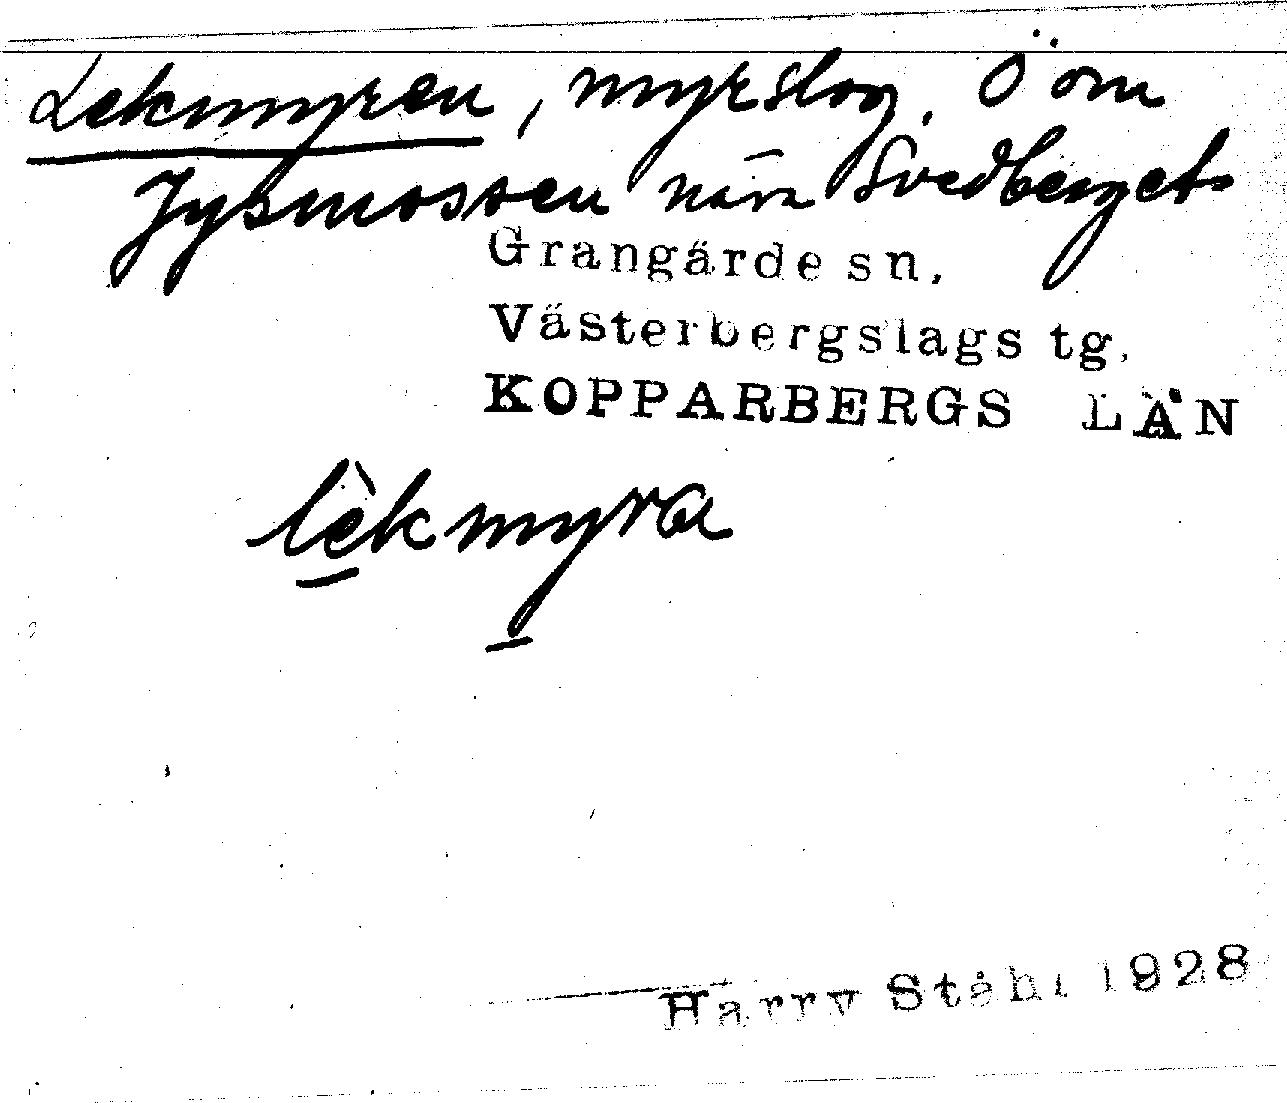 Lekmyren, myrslog. Ö om
Jysmossen nära Svedberget.
Grangärde sn.
Västerbergslags tg.
KOPPARBERGS LÄN
lèkmyra
Harry Ståhl 1928